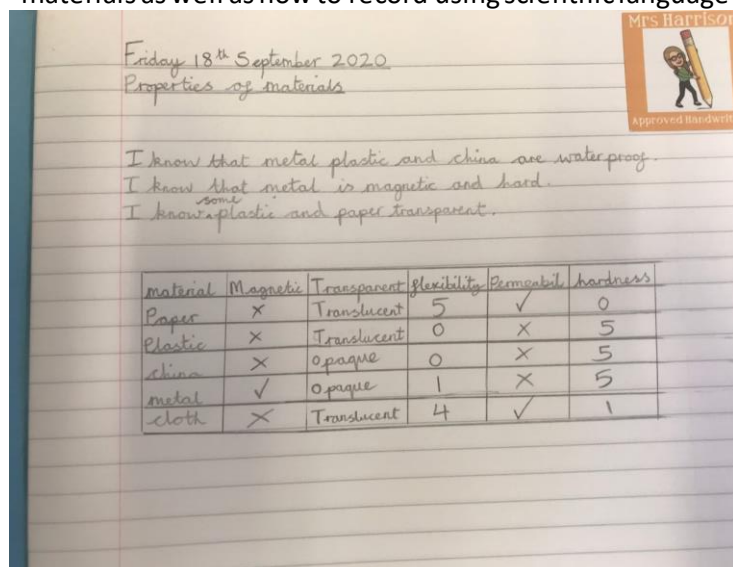 materials as well as how to record using scientific language
Mrs Harrison
Approved Handwrit
Friday 18th September 2020
Properties of materials
I know that metal plastic and china are waterproof.
I know that metal is magnetic and hard.
I know some plastic and paper transparent.
material Magnetic Transparent flexibility Permeabil hardness
Paper × Translucent 5 ✓ 0
Plastic × Translucent 0 × 5
china × opaque 0 × 5
metal ✓ opaque 1 × 5
cloth × Translucent 4 ✓ 1